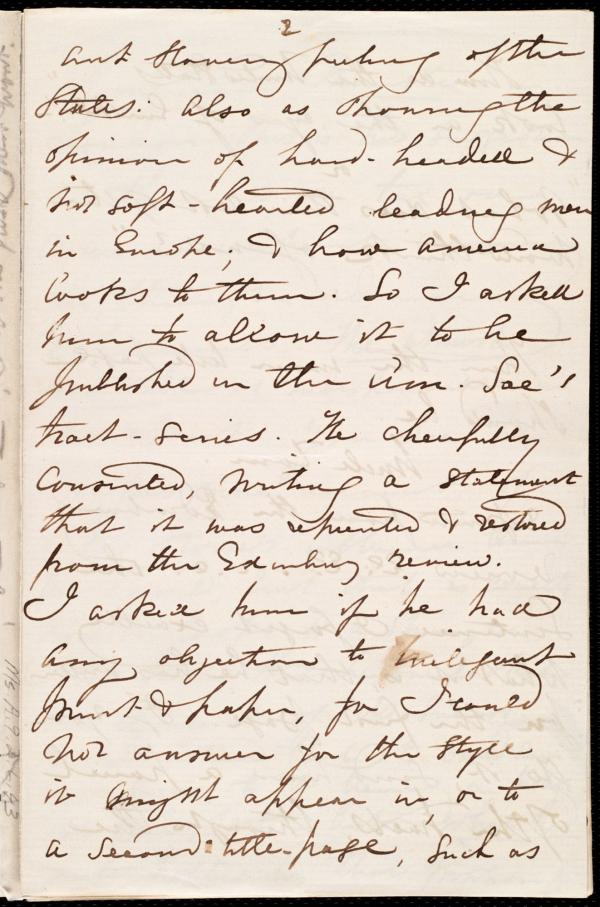 2
anti Slavery feeling of the
States: also as showing the
opinion of hard-headed &
not soft-hearted leading men
in Europe; & how America
looks to them. So I asked
him to allow it to be
published in the Am. Soc's
tract-series. He cheerfully
consented, writing a statement
that it was reprinted & restored
from the Edinburg review.
I asked him if he had
any objection to inelegant
print & paper, for I could
not answer for the style
it might appear in, or to
a second title-page, such as